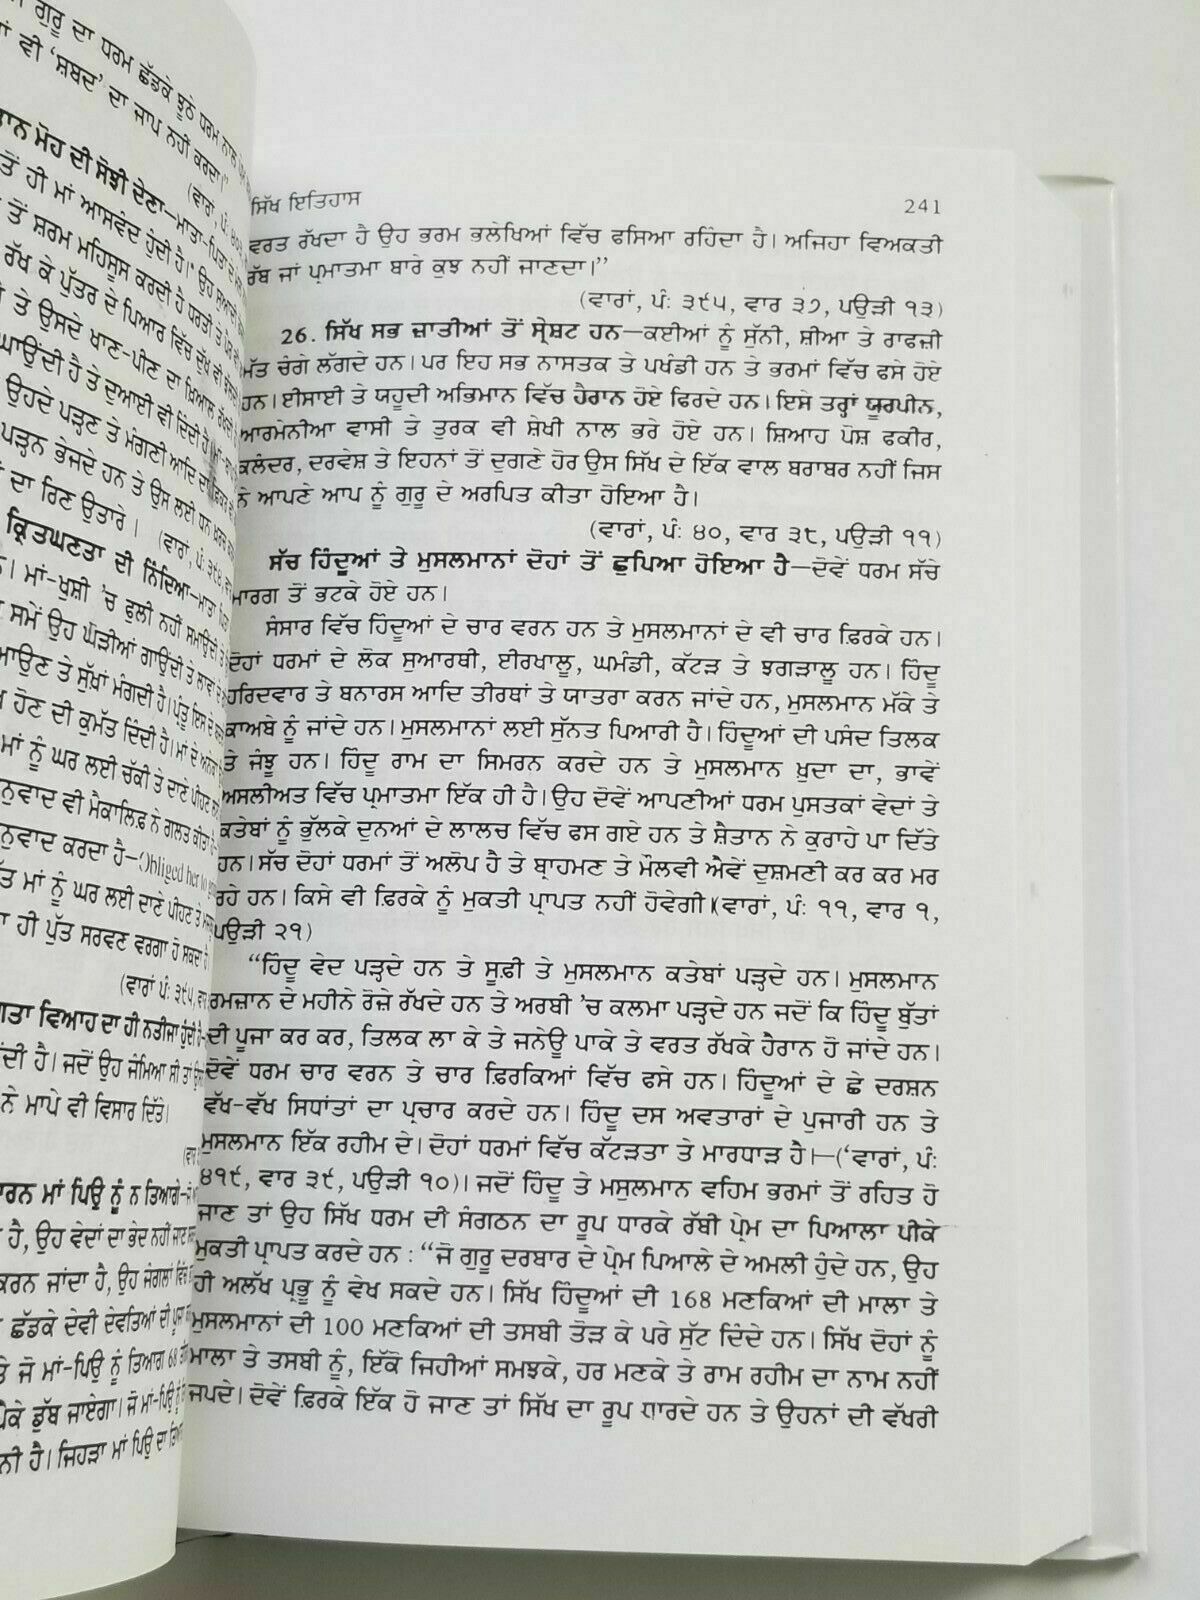 ਗੁਰੂ ਦਾ ਧਰਮ ਛੱਡਕੇ ਝੂਠੇ ਧਰਮ ਨਾਲ
ਵੀ ‘ਸ਼ਬਦ’ ਦਾ ਜਾਪ ਨਹੀਂ ਕਰਦਾ।”
(ਵਾਰਾਂ, ਪੰ:
ਮੋਹ ਦੀ ਸੋਝੀ ਦੇਣਾ—ਮਾਤਾ-ਪਿਤਾ ਦੇ
ਤੋਂ ਹੀ ਮਾਂ ਆਸਵੰਦ ਹੁੰਦੀ ਹੈ।” ਉਹ
ਤੋਂ ਸ਼ਰਮ ਮਹਿਸੂਸ ਕਰਦੀ ਹੈ ਧਰਤੀ ਤੇ ਪੈਰ
ਰੱਖ ਕੇ ਪੁੱਤਰ ਦੇ ਪਿਆਰ ਵਿੱਚ ਦੁੱਖ ਵੀ
ਤੇ ਉਸਦੇ ਖਾਣ-ਪੀਣ ਦਾ ਖ਼ਿਆਲ ਰੱਖਦੀ
ਹੈ ਤੇ ਦੁਆਈ ਵੀ ਦਿੰਦੀ ਹੈ।
ਉਹਦੇ ਪੜ੍ਹਣ ਤੇ ਮੰਗਣੀ ਆਦਿ ਦਾ ਫ਼ਿਕਰ
ਪੜ੍ਹਨ ਭੇਜਦੇ ਹਨ ਤੇ ਉਸ ਲਈ ਧਨ ਖ਼ਰਚ
ਦਾ ਰਿਣ ਉਤਾਰੇ। (ਵਾਰਾਂ, ਪੰ: ੩੯੪,
ਕ੍ਰਿਤਘਣਤਾ ਦੀ ਨਿੰਦਿਆ—ਮਾਤਾ ਪਿਤਾ
ਮਾਂ-ਖੁਸ਼ੀ ’ਚ ਫੁਲੀ ਨਹੀਂ ਸਮਾਉਂਦੀ
ਸਮੇਂ ਉਹ ਘੋੜੀਆਂ ਗਾਉਂਦੀ ਤੇ ਲਾਵਾਂ ਦੇ
ਤੇ ਸੁੱਖ਼ਾਂ ਮੰਗਦੀ ਹੈ। ਪੰਤੂ ਇਸ ਦੇ
ਹੋਣ ਦੀ ਕੁਮੱਤ ਦਿੰਦੀ ਹੈ। ਮਾਂ ਦੇ ਅਨੇਕਾਂ
ਮਾਂ ਨੂੰ ਘਰ ਲਈ ਚੱਕੀ ਤੇ ਦਾਣੇ ਪੀਹਣ
ਵੀ ਮੈਕਾਲਿਫ਼ ਨੇ ਗਲਤ ਕੀਤਾ ਹੈ-
ਕਰਦਾ ਹੈ—Obliged her to
ਮਾਂ ਨੂੰ ਘਰ ਲਈ ਦਾਣੇ ਪੀਹਣ ਤੇ
ਹੀ ਪੁੱਤ ਸਰਵਣ ਵਰਗਾ ਹੋ ਸਕਦਾ ਹੈ।
(ਵਾਰਾਂ ਪੰ: ੩੯੫,
ਵਿਆਹ ਦਾ ਹੀ ਨਤੀਜਾ ਹੁੰਦੀ ਹੈ-
ਹੈ। ਜਦੋਂ ਉਹ ਜੰਮਿਆ ਸੀ ਤਾਂ
ਨੇ ਮਾਪੇ ਵੀ ਵਿਸਾਰ ਦਿੱਤੇ।
ਮਾਂ ਪਿਉ ਨੂੰ ਨ ਤਿਆਗੇ-ਜੋ
ਹੈ, ਉਹ ਵੇਦਾਂ ਦਾ ਭੇਦ ਨਹੀਂ ਜਾਣ
ਕਰਨ ਜਾਂਦਾ ਹੈ, ਉਹ ਜੰਗਲਾਂ ਵਿੱਚ
ਛੱਡਕੇ ਦੇਵੀ ਦੇਵਤਿਆਂ ਦੀ ਪੂਜਾ
ਜੋ ਮਾਂ-ਪਿਉ ਨੂੰ ਤਿਆਗ 68
ਡੁੱਬ ਜਾਏਗਾ। ਜੋ ਮਾਂ-ਪਿਉ ਨੂੰ
ਹੈ। ਜਿਹੜਾ ਮਾਂ ਪਿਉ ਦਾ
ਸਿੱਖ ਇਤਿਹਾਸ 241
ਵਰਤ ਰੱਖਦਾ ਹੈ ਉਹ ਭਰਮ ਭਲੇਖਿਆਂ ਵਿੱਚ ਫਸਿਆ ਰਹਿੰਦਾ ਹੈ। ਅਜਿਹਾ ਵਿਅਕਤੀ
ਰੱਬ ਜਾਂ ਪ੍ਰਮਾਤਮਾ ਬਾਰੇ ਕੁਝ ਨਹੀਂ ਜਾਣਦਾ।”
(ਵਾਰਾਂ, ਪੰ: ੩੯੫, ਵਾਰ ੩੭, ਪਉੜੀ ੧੩)
26. ਸਿੱਖ ਸਭ ਜ਼ਾਤੀਆਂ ਤੋਂ ਸ੍ਰੇਸ਼ਟ ਹਨ—ਕਈਆਂ ਨੂੰ ਸੁੰਨੀ, ਸ਼ੀਆ ਤੇ ਰਾਫਜ਼ੀ
ਮੱਤ ਚੰਗੇ ਲੱਗਦੇ ਹਨ। ਪਰ ਇਹ ਸਭ ਨਾਸਤਕ ਤੇ ਪਖੰਡੀ ਹਨ ਤੇ ਭਰਮਾਂ ਵਿੱਚ ਫਸੇ ਹੋਏ
ਹਨ। ਈਸਾਈ ਤੇ ਯਹੂਦੀ ਅਭਿਮਾਨ ਵਿੱਚ ਹੈਰਾਨ ਹੋਏ ਫਿਰਦੇ ਹਨ। ਇਸੇ ਤਰ੍ਹਾਂ ਯੂਰਪੀਨ,
ਆਰਮੇਨੀਆ ਵਾਸੀ ਤੇ ਤੁਰਕ ਵੀ ਸ਼ੇਖੀ ਨਾਲ ਭਰੇ ਹੋਏ ਹਨ। ਸ਼ਿਆਹ ਪੋਸ਼ ਫਕੀਰ,
ਕਲੰਦਰ, ਦਰਵੇਸ਼ ਤੇ ਇਹਨਾਂ ਤੋਂ ਦੁਗਣੇ ਹੋਰ ਉਸ ਸਿੱਖ ਦੇ ਇੱਕ ਵਾਲ ਬਰਾਬਰ ਨਹੀਂ ਜਿਸ
ਨੇ ਆਪਣੇ ਆਪ ਨੂੰ ਗੁਰੂ ਦੇ ਅਰਪਿਤ ਕੀਤਾ ਹੋਇਆ ਹੈ।
(ਵਾਰਾਂ, ਪੰ: ੪੦, ਵਾਰ ੩੮, ਪਉੜੀ ੧੧)
ਸੱਚ ਹਿੰਦੂਆਂ ਤੇ ਮੁਸਲਮਾਨਾਂ ਦੋਹਾਂ ਤੋਂ ਛੁਪਿਆ ਹੋਇਆ ਹੈ—ਦੋਵੇਂ ਧਰਮ ਸੱਚੇ
ਮਾਰਗ ਤੋਂ ਭਟਕੇ ਹੋਏ ਹਨ।
ਸੰਸਾਰ ਵਿੱਚ ਹਿੰਦੂਆਂ ਦੇ ਚਾਰ ਵਰਨ ਹਨ ਤੇ ਮੁਸਲਮਾਨਾਂ ਦੇ ਵੀ ਚਾਰ ਫ਼ਿਰਕੇ ਹਨ।
ਦੋਹਾਂ ਧਰਮਾਂ ਦੇ ਲੋਕ ਸੁਆਰਥੀ, ਈਰਖਾਲੂ, ਘਮੰਡੀ, ਕੱਟੜ ਤੇ ਝਗੜਾਲੂ ਹਨ। ਹਿੰਦੂ
ਹਰਿਦਵਾਰ ਤੇ ਬਨਾਰਸ ਆਦਿ ਤੀਰਥਾਂ ਤੇ ਯਾਤਰਾ ਕਰਨ ਜਾਂਦੇ ਹਨ, ਮੁਸਲਮਾਨ ਮੱਕੇ ਤੇ
ਕਾਅਬੇ ਨੂੰ ਜਾਂਦੇ ਹਨ। ਮੁਸਲਮਾਨਾਂ ਲਈ ਸੁੰਨਤ ਪਿਆਰੀ ਹੈ। ਹਿੰਦੂਆਂ ਦੀ ਪਸੰਦ ਤਿਲਕ
ਤੇ ਜੰਞੂ ਹਨ। ਹਿੰਦੂ ਰਾਮ ਦਾ ਸਿਮਰਨ ਕਰਦੇ ਹਨ ਤੇ ਮੁਸਲਮਾਨ ਖ਼ੁਦਾ ਦਾ, ਭਾਵੇਂ
ਅਸਲੀਅਤ ਵਿੱਚ ਪ੍ਰਮਾਤਮਾ ਇੱਕ ਹੀ ਹੈ। ਉਹ ਦੋਵੇਂ ਆਪਣੀਆਂ ਧਰਮ ਪੁਸਤਕਾਂ ਵੇਦਾਂ ਤੇ
ਕਤੇਬਾਂ ਨੂੰ ਭੁੱਲਕੇ ਦੁਨਆਂ ਦੇ ਲਾਲਚ ਵਿੱਚ ਫਸ ਗਏ ਹਨ ਤੇ ਸ਼ੈਤਾਨ ਨੇ ਕੁਰਾਹੇ ਪਾ ਦਿੱਤੇ
ਹਨ। ਸੱਚ ਦੋਹਾਂ ਧਰਮਾਂ ਤੋਂ ਅਲੋਪ ਹੈ ਤੇ ਬ੍ਰਾਹਮਣ ਤੇ ਮੌਲਵੀ ਐਵੇਂ ਦੁਸ਼ਮਣੀ ਕਰ ਕਰ ਮਰ
ਰਹੇ ਹਨ। ਕਿਸੇ ਵੀ ਫ਼ਿਰਕੇ ਨੂੰ ਮੁਕਤੀ ਪ੍ਰਾਪਤ ਨਹੀਂ ਹੋਵੇਗੀ।(ਵਾਰਾਂ, ਪੰ: ੧੧, ਵਾਰ ੧,
ਪਉੜੀ ੨੧)
“ਹਿੰਦੂ ਵੇਦ ਪੜ੍ਹਦੇ ਹਨ ਤੇ ਸੂਫ਼ੀ ਤੇ ਮੁਸਲਮਾਨ ਕਤੇਬਾਂ ਪੜ੍ਹਦੇ ਹਨ। ਮੁਸਲਮਾਨ
ਰਮਜ਼ਾਨ ਦੇ ਮਹੀਨੇ ਰੋਜ਼ੇ ਰੱਖਦੇ ਹਨ ਤੇ ਅਰਬੀ ’ਚ ਕਲਮਾ ਪੜ੍ਹਦੇ ਹਨ ਜਦੋਂ ਕਿ ਹਿੰਦੂ ਬੁੱਤਾਂ
ਦੀ ਪੂਜਾ ਕਰ ਕਰ, ਤਿਲਕ ਲਾ ਕੇ ਤੇ ਜਨੇਊ ਪਾਕੇ ਤੇ ਵਰਤ ਰੱਖਕੇ ਹੈਰਾਨ ਹੋ ਜਾਂਦੇ ਹਨ।
ਦੋਵੇਂ ਧਰਮ ਚਾਰ ਵਰਨ ਤੇ ਚਾਰ ਫ਼ਿਰਕਿਆਂ ਵਿੱਚ ਫਸੇ ਹਨ। ਹਿੰਦੂਆਂ ਦੇ ਛੇ ਦਰਸ਼ਨ
ਵੱਖ-ਵੱਖ ਸਿਧਾਂਤਾਂ ਦਾ ਪ੍ਰਚਾਰ ਕਰਦੇ ਹਨ। ਹਿੰਦੂ ਦਸ ਅਵਤਾਰਾਂ ਦੇ ਪੁਜਾਰੀ ਹਨ ਤੇ
ਮੁਸਲਮਾਨ ਇੱਕ ਰਹੀਮ ਦੇ। ਦੋਹਾਂ ਧਰਮਾਂ ਵਿੱਚ ਕੱਟੜਤਾ ਤੇ ਮਾਰਧਾੜ ਹੈ।—(‘ਵਾਰਾਂ, ਪੰ:
੪੧੯, ਵਾਰ ੩੯, ਪਉੜੀ ੧੦)। ਜਦੋਂ ਹਿੰਦੂ ਤੇ ਮਸੁਲਮਾਨ ਵਹਿਮ ਭਰਮਾਂ ਤੋਂ ਰਹਿਤ ਹੋ
ਜਾਣ ਤਾਂ ਉਹ ਸਿੱਖ ਧਰਮ ਦੀ ਸੰਗਠਨ ਦਾ ਰੂਪ ਧਾਰਕੇ ਰੱਬੀ ਪ੍ਰੇਮ ਦਾ ਪਿਆਲਾ ਪੀਕੇ
ਮੁਕਤੀ ਪ੍ਰਾਪਤ ਕਰਦੇ ਹਨ : “ਜੋ ਗੁਰੂ ਦਰਬਾਰ ਦੇ ਪ੍ਰੇਮ ਪਿਆਲੇ ਦੇ ਅਮਲੀ ਹੁੰਦੇ ਹਨ, ਉਹ
ਹੀ ਅਲੱਖ ਪ੍ਰਭੂ ਨੂੰ ਵੇਖ ਸਕਦੇ ਹਨ। ਸਿੱਖ ਹਿੰਦੂਆਂ ਦੀ 168 ਮਣਕਿਆਂ ਦੀ ਮਾਲਾ ਤੇ
ਮੁਸਲਮਾਨਾਂ ਦੀ 100 ਮਣਕਿਆਂ ਦੀ ਤਸਬੀ ਤੋੜ ਕੇ ਪਰੇ ਸੁੱਟ ਦਿੰਦੇ ਹਨ। ਸਿੱਖ ਦੋਹਾਂ ਨੂੰ
ਮਾਲਾ ਤੇ ਤਸਬੀ ਨੂੰ, ਇੱਕੋ ਜਿਹੀਆਂ ਸਮਝਕੇ, ਹਰ ਮਣਕੇ ਤੇ ਰਾਮ ਰਹੀਮ ਦਾ ਨਾਮ ਨਹੀਂ
ਜਪਦੇ। ਦੋਵੇਂ ਫ਼ਿਰਕੇ ਇੱਕ ਹੋ ਜਾਣ ਤਾਂ ਸਿੱਖ ਦਾ ਰੂਪ ਧਾਰਦੇ ਹਨ ਤੇ ਉਹਨਾਂ ਦੀ ਵੱਖਰੀ